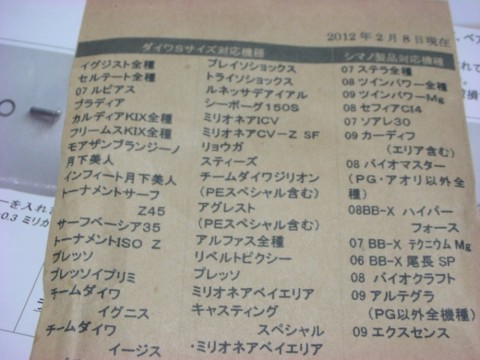 2012年2月8日現在
ダイワSサイズ対応機種
イグジスト全種
セルテート全種
07 ルビアス
ブラディア
カルディアKIX全種
フリームスKIX全種
モアザンブランジーノ
月下美人
インフィート月下美人
トーナメントサーフ
Z45
サーフベーシア35
トーナメントISO Z
プレッソ
プレッソイプリミ
チームダイワ
イグニス
チームダイワ
イージス
ブレイゾショックス
トライソショックス
ルネッサデアイアル
シーボーグ150S
ミリオネアICV
ミリオネアCV-Z SF
リョウガ
スティーズ
チームダイワジリオン
(PEスペシャル含む)
アグレスト
(PEスペシャル含む)
アルファス全種
リベルトピクシー
プレッソ
ミリオネアベイエリア
キャスティング
スペシャル
・ミリオネアベイエリア
シマノ製品対応機種
07 ステラ全種
08 ツインパワー全種
09 ツインパワーMg
08 セフィアCI4
07 ソアレ30
09 カーディフ
(エリア含む)
08 バイオマスター
(PG・アオリ以外全
種)
08BB-X ハイパー
フォース
07 BB-X テクニウムMg
06 BB-X 尾長 SP
08 バイオクラフト
09 アルテグラ
(PG以外全機種)
09 エクスセンス
ーを入れて
0.3 ミリカ